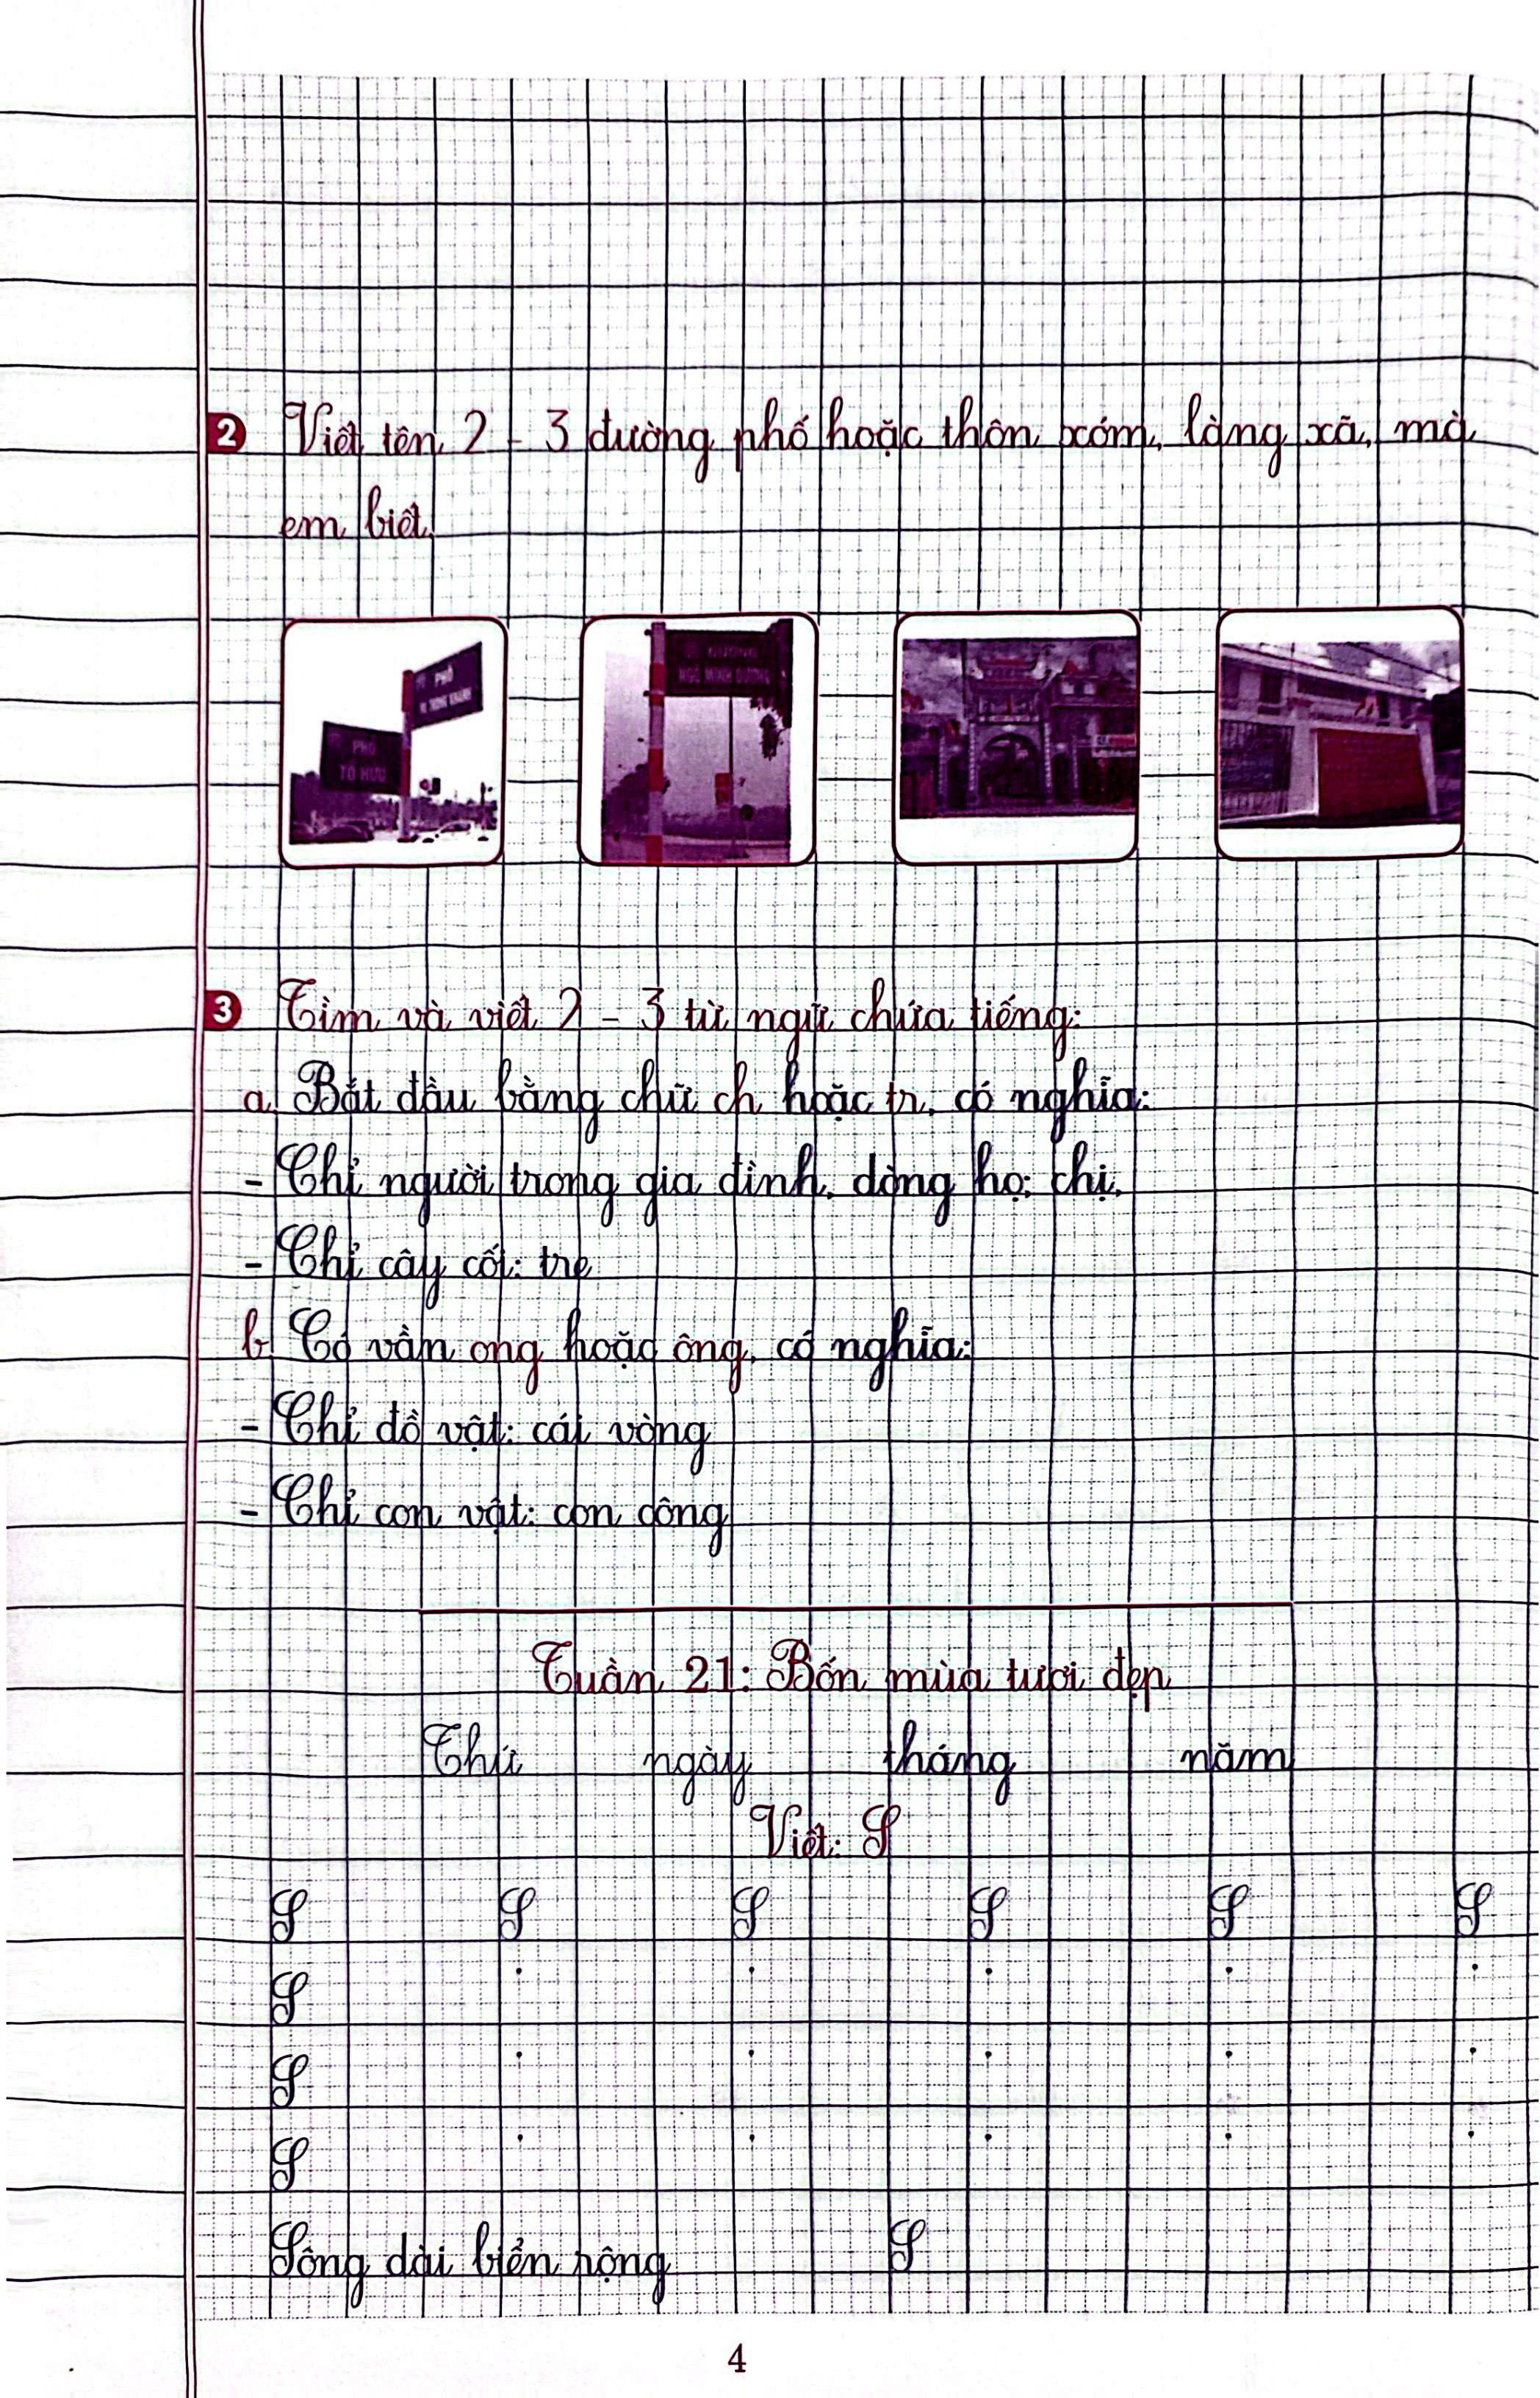 2 Viết tên 2 - 3 đường phố hoặc thôn xóm, làng xã, mà
em biết.
PHỐ
PHỐ
TỐ HỮU
ĐƯỜNG
NGÔ MINH DƯƠNG
3 Tìm và viết 2 - 3 từ ngữ chứa tiếng:
a. Bắt đầu bằng chữ ch hoặc tr, có nghĩa:
- Chỉ người trong gia đình, dòng họ: chị,
- Chỉ cây cối: tre
b. Có vần ong hoặc ông, có nghĩa:
- Chỉ đồ vật: cái vòng
- Chỉ con vật: con công
Tuần 21: Bốn mùa tươi đẹp
Thứ ngày tháng năm
Viết: S
S S S S S S
S
S
S
Sông dài biển rộng S
4